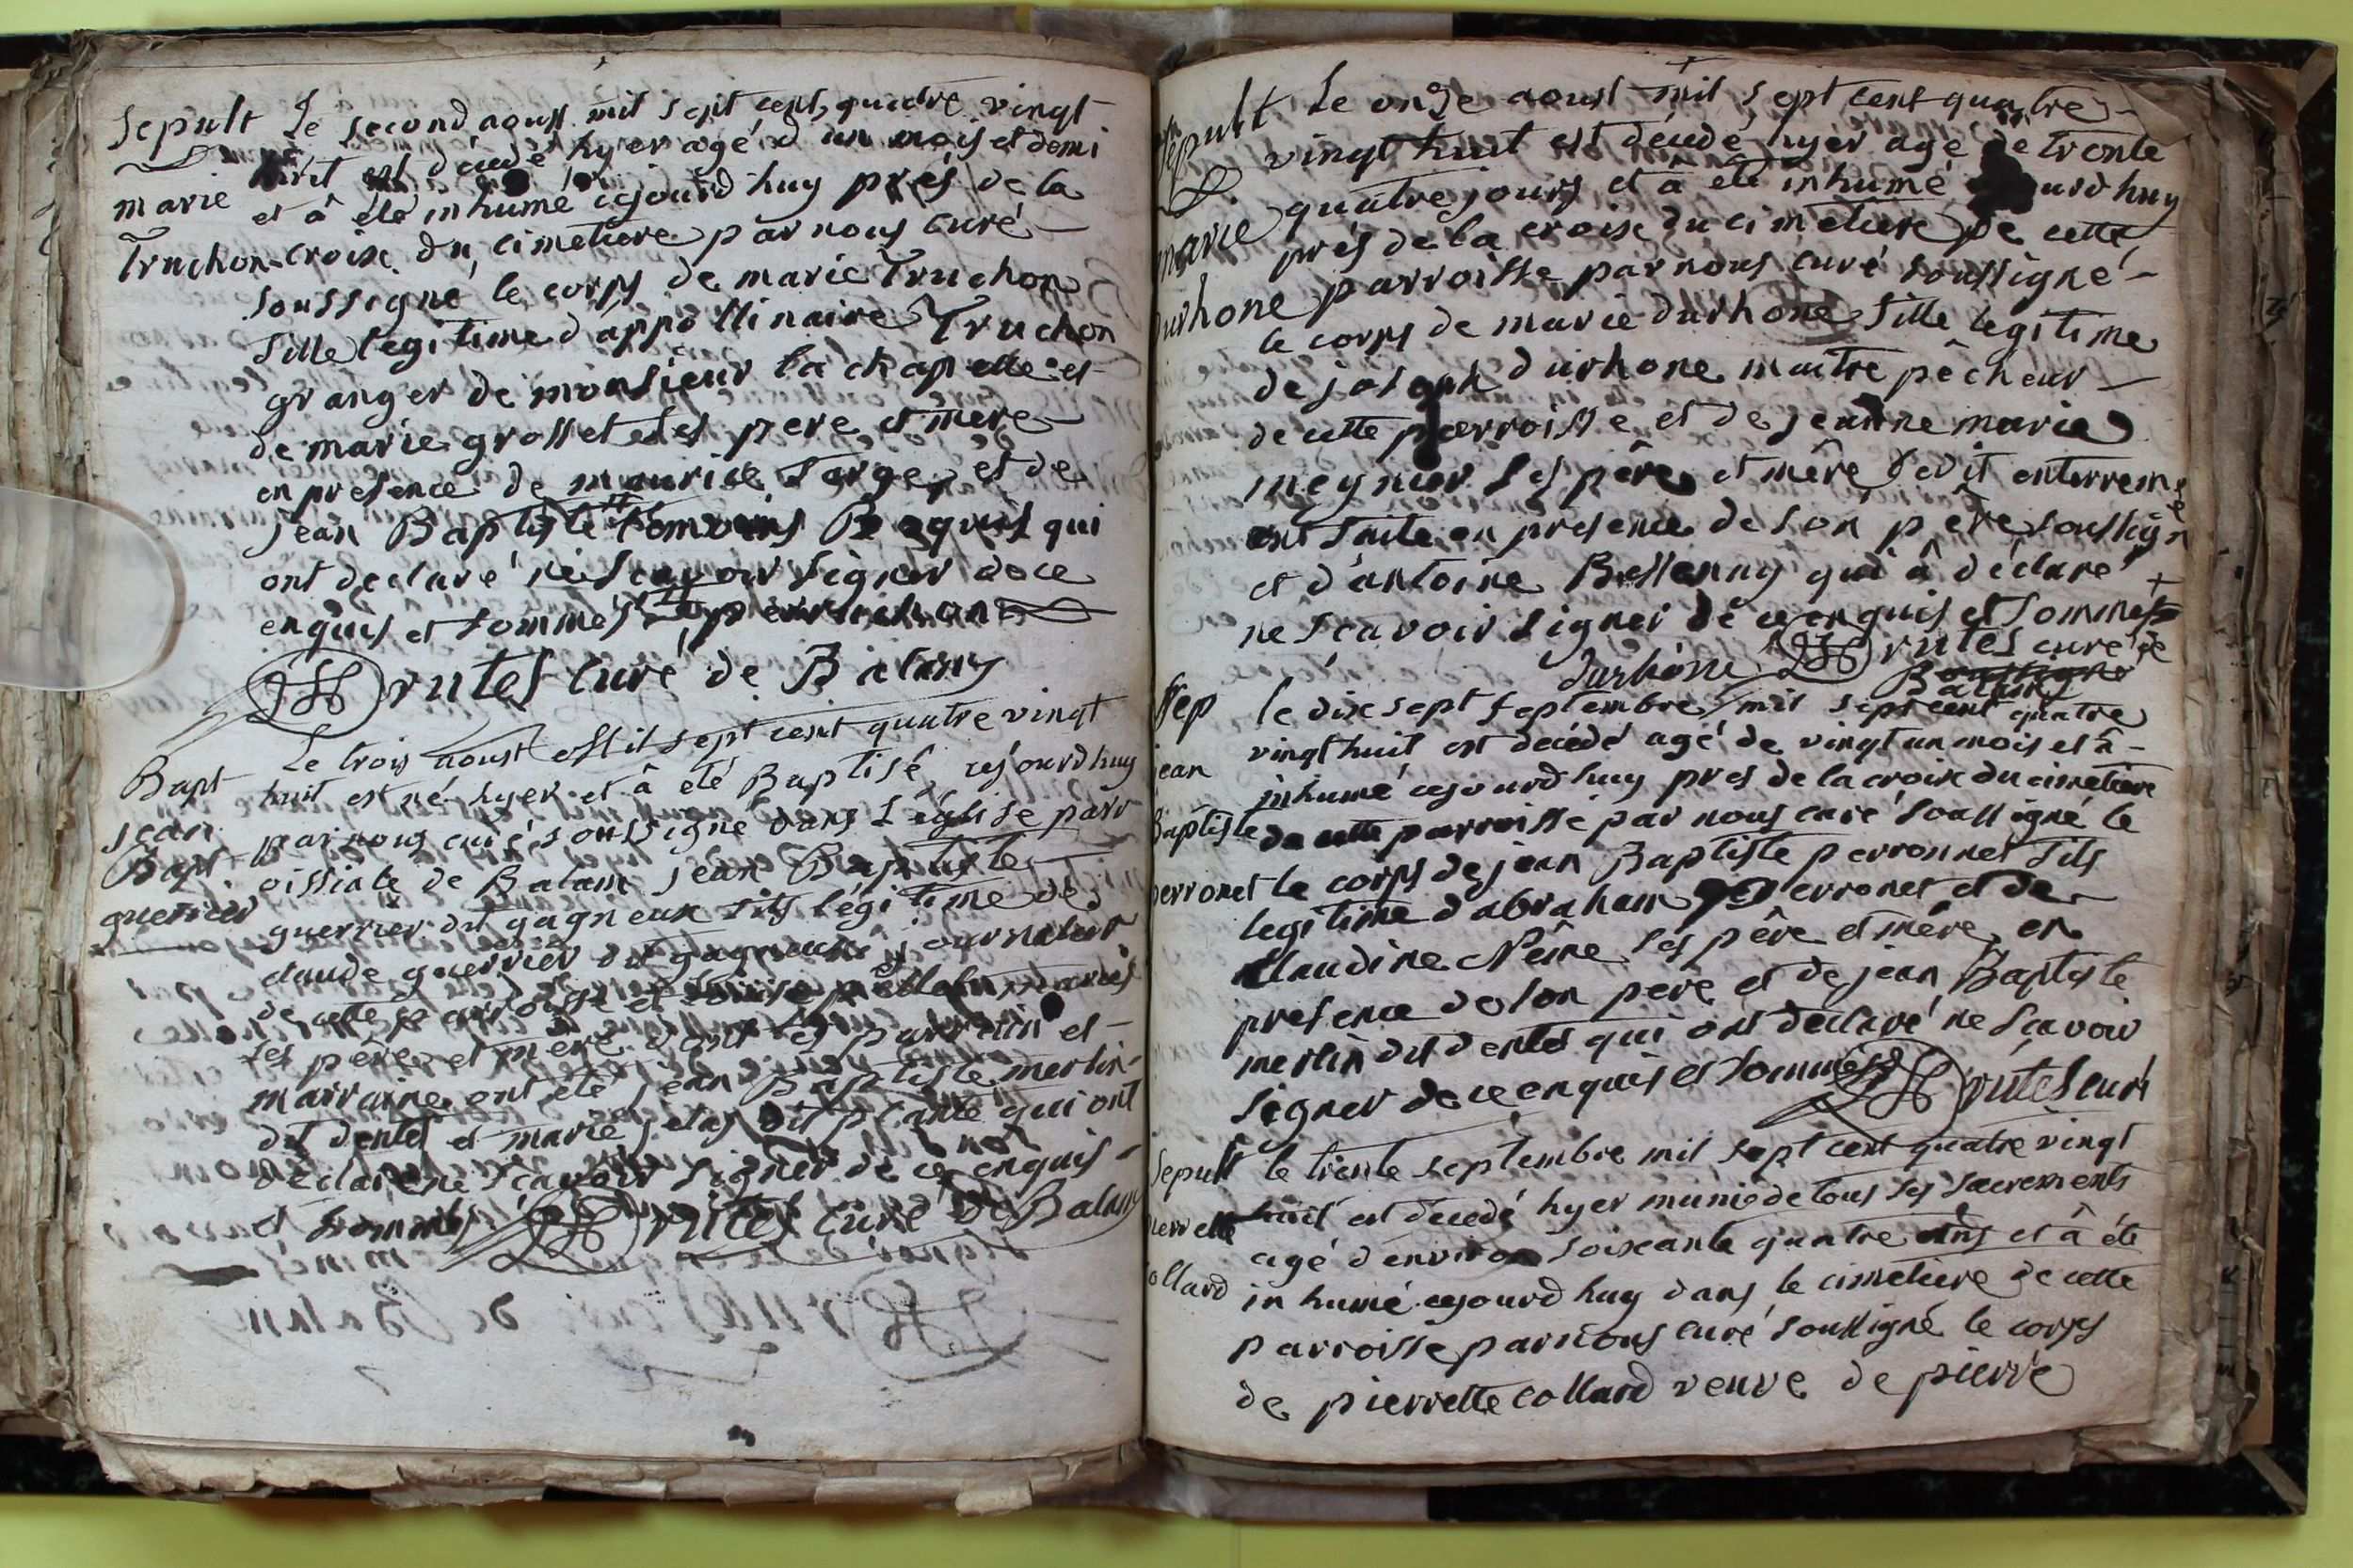 Sepult Le second aoust mil sept cent quatre vingt
huit est décédé hyer agé d'un mois et demi
marie et à été inhumé cejourd'huy prés de la
Truchon croix du cimetiere par nous curé
soussigné le corps de marie Truchon
fille legitime d'appollinaire Truchon
granger de monsieur la chapelle et
de marie grosset ses pere et mere
en presence de maurice farge et de
jean Baptiste qui
ont declaré ne sçavoir signer de ce
enquis et sommés
rutes curé de Balans
Le trois aoust mil sept cent quatre vingt
Bapt huit est né hyer et à été Baptisé cejourd'huy
jean par nous curé soussigné dans l'église parr
Bapt oissiale de Balans jean Baptiste
guerrier guerrier dit gagneux fils légitime de
claude guerrier dit gagneux journalier
de cette parroisse et
ses père et mere dont les parrain et
marraine ont été jean Baptiste merlin
dit dentes et marie dit plante qui ont
declaré ne sçavoir signer de ce enquis
et sommés rutes curé de Balans
Sepult Le onze aoust mil sept cent quatre
vingt huit est décédé hyer agé de trente
quatre jours et à été inhumé urd'huy
marie prés de la croix du cimetiere de cette
durhone parroisse par nous curé soussigné
le corps de marie durhone fille legitime
de joseph durhone maitre pêcheur
de cette parroisse et de jeanne marie
meynier ses père et mère ledit enterreme
faite en presence de son père soussigné
et d'antoine qui à déclaré
ne sçavoir signer de ce enquis et sommés
durhône rutes curé de
Balans
Sep le dix sept septembre mil sept cent quatre
vingt huit est décédé agé de vingt un mois et à
jean inhumé cejourd'huy pres de la croix du cimetiere
Baptiste de cette parroisse par nous curé soussigné le
perronet le corps de jean Baptiste perronnet fils
legitime d'abraham perronet et de
Claudine Nême ses père et mère en
presence de son père et de jean Baptiste
merlin dit dentes qui ont déclaré ne sçavoir
signer de ce enquis et sommés rutes curé
Sepult le trente septembre mil sept cent quatre vingt
pierrette huit est decedé hyer munie de tous ses sacrements
agé d'environ soixante quatre ans et à été
collard inhumé cejourd'huy dans le cimetiere de cette
parroisse par nous curé soussigné le corps
de pierrette collard veuve de pierre